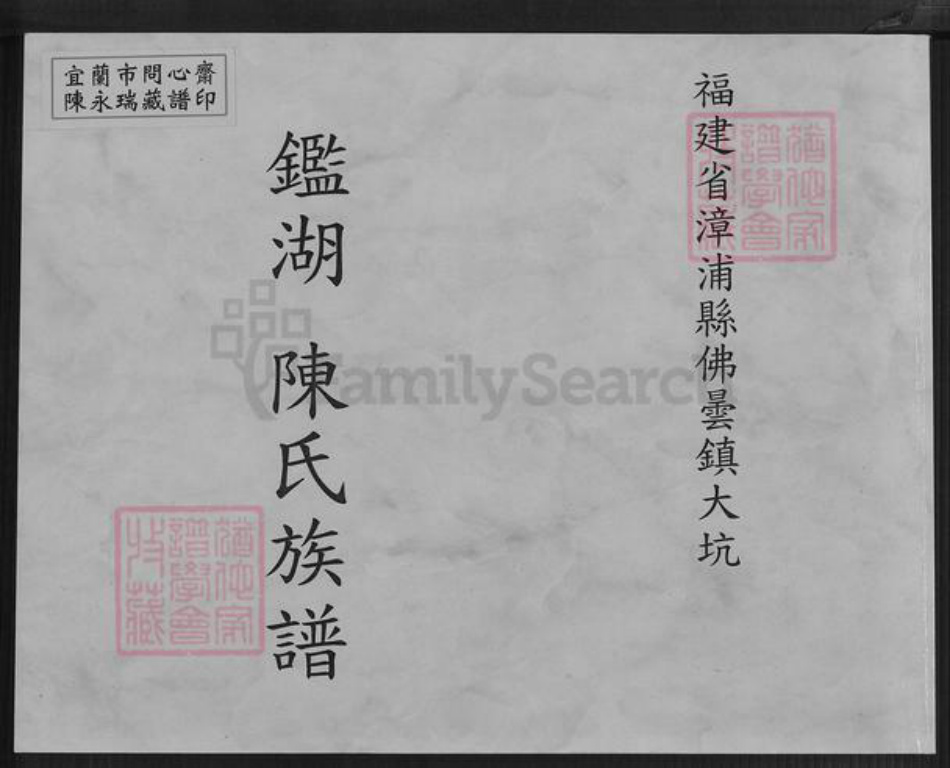 福建省漳浦縣佛曇鎮大坑
鑑湖 陳氏族譜
宜蘭市問心齋
陳永瑞藏譜印
FamilySearch